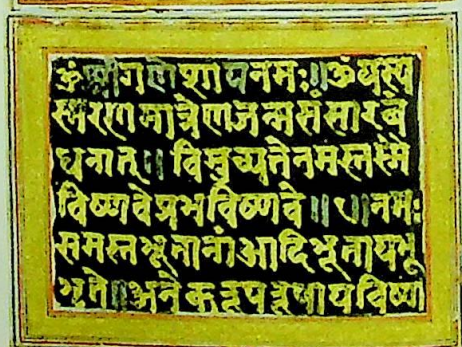 ॐ श्रीगणेशायनमः॥ॐयस्य
स्मरणमात्रेणजन्मसंसारबं
धनात्॥विमुच्यतेनमस्तस्मै
विष्णवेप्रभविष्णवे॥१॥नमः
समस्तभूतानांआदिभूतायभू
भृते॥अनेकरूपरूपायविष्ण